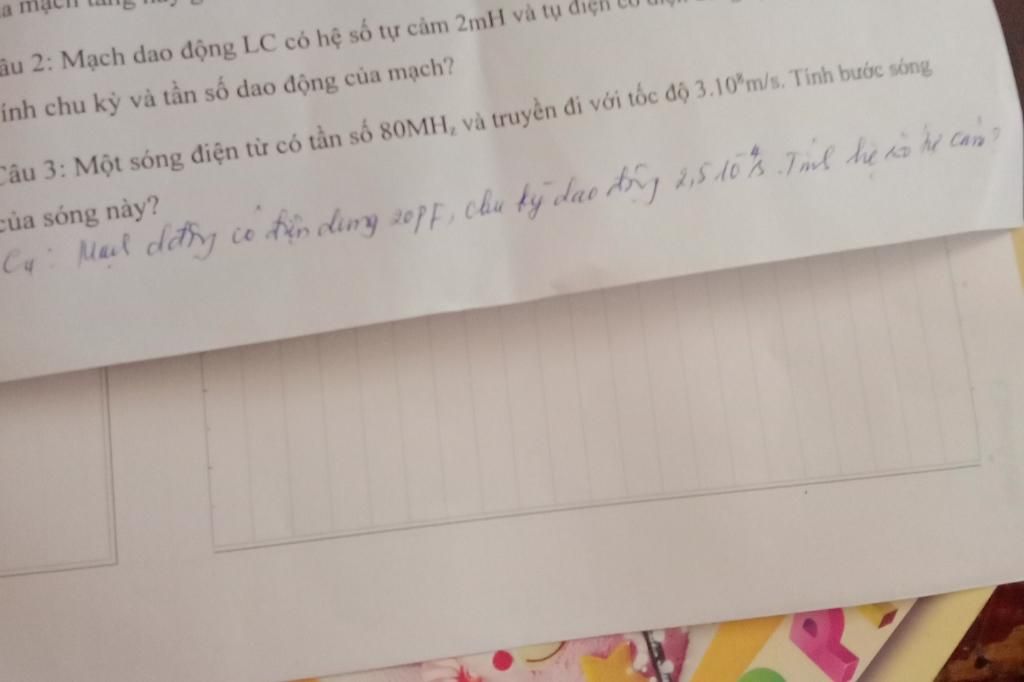 a mạch
âu 2: Mạch dao động LC có hệ số tự cảm 2mH và tụ điện có
ính chu kỳ và tần số dao động của mạch?
Câu 3: Một sóng điện từ có tần số 80MHz và truyền đi với tốc độ 3.10⁸m/s. Tính bước sóng
của sóng này?
C4: Mạch dđộng có điện dung 20pF, chu kỳ dao động 2,5.10⁻⁴s. Tính hệ số tự cảm?
P